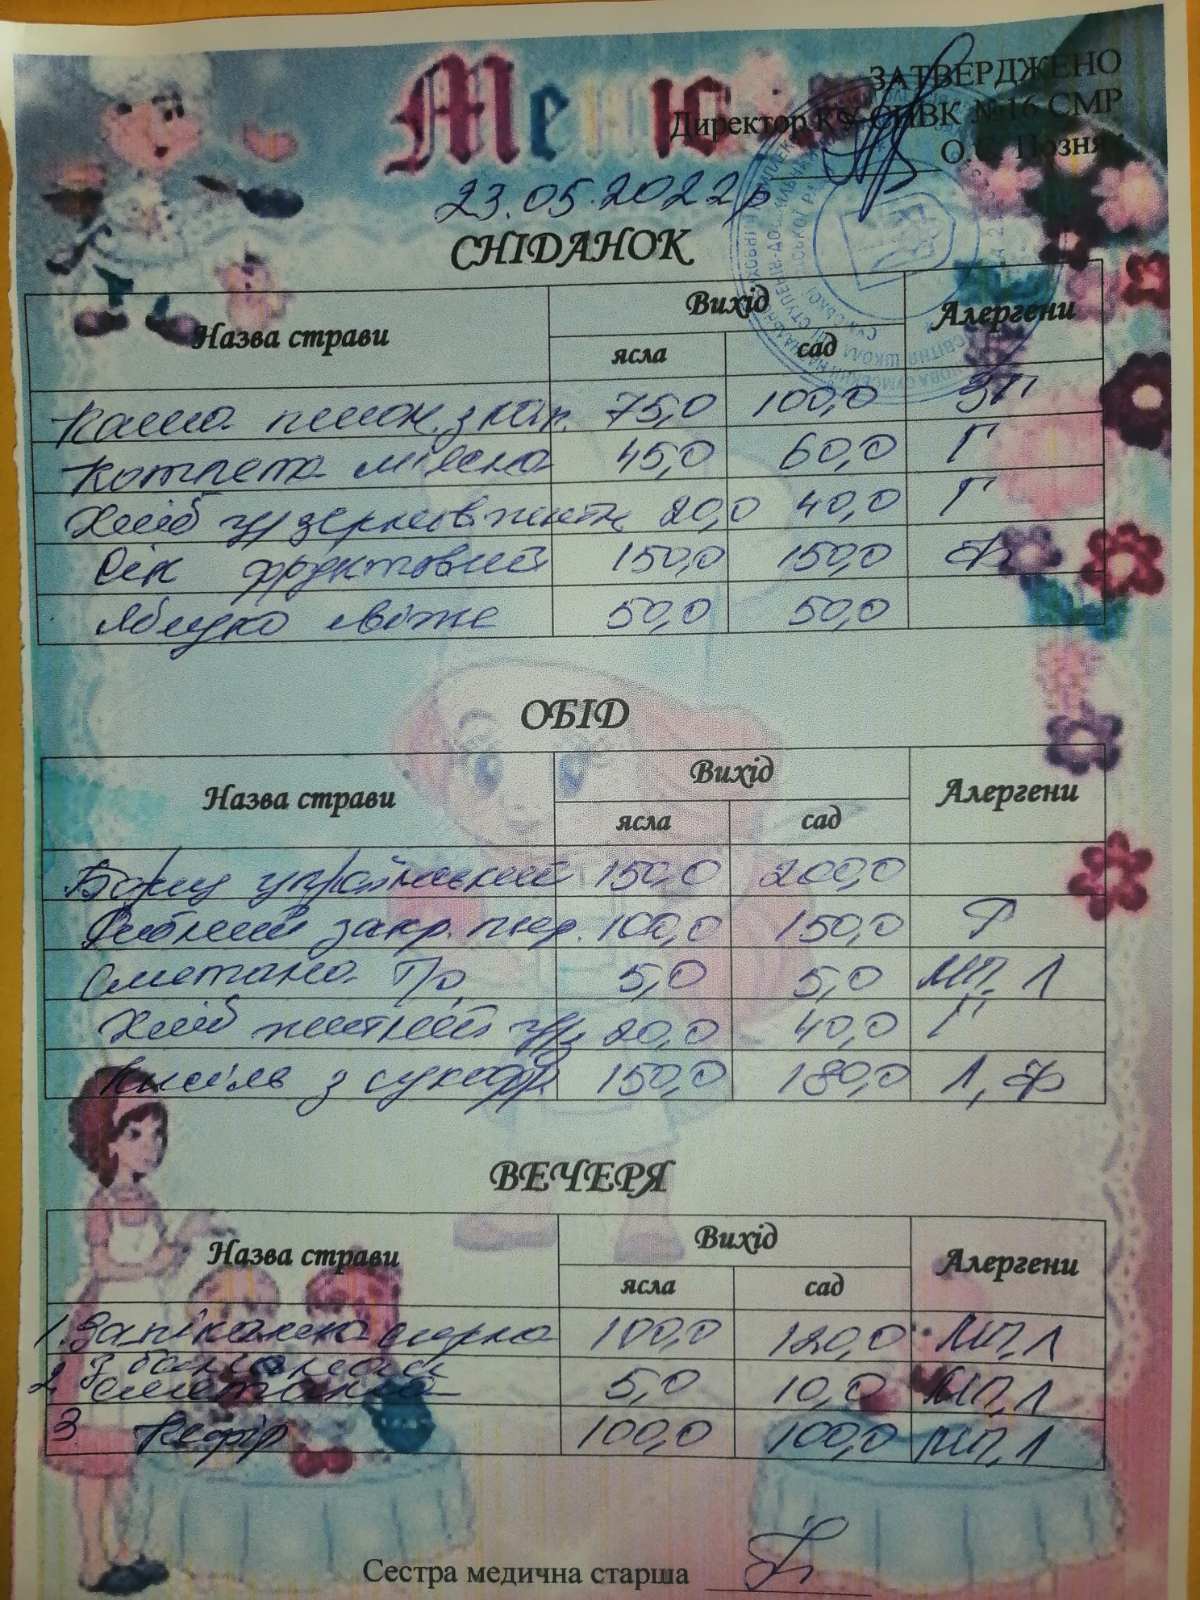 Меню
ЗАТВЕРДЖЕНО
Директор КУ СПВК №16 СМР
О.С. Позняк
23.05.2022р
СНІДАНОК
Назва страви Вихід Алергени
ясла сад
Каша пшон. з кап. 75,0 100,0 ЗП
Котлета м'ясна 45,0 60,0 Г
Хліб ц/зернов житн 20,0 40,0 Г
Сік фруктовий 150,0 150,0 Ф
Яблуко свіже 50,0 50,0
ОБІД
Назва страви Вихід Алергени
ясла сад
Борщ український 150,0 200,0
Рибний 100,0 150,0 Р
Сметана 5,0 5,0 МП. Л
Хліб житній ц/з 20,0 40,0 Г
Кисіль з сухофр. 150,0 180,0 Л, Ф
ВЕЧЕРЯ
Назва страви Вихід Алергени
ясла сад
1. Запіканка сирна 100,0 120,0 МП, Л
з бананами
2 сметана 5,0 10,0 МП, Л
3 Кефір 100,0 100,0 МП, Л
Сестра медична старша